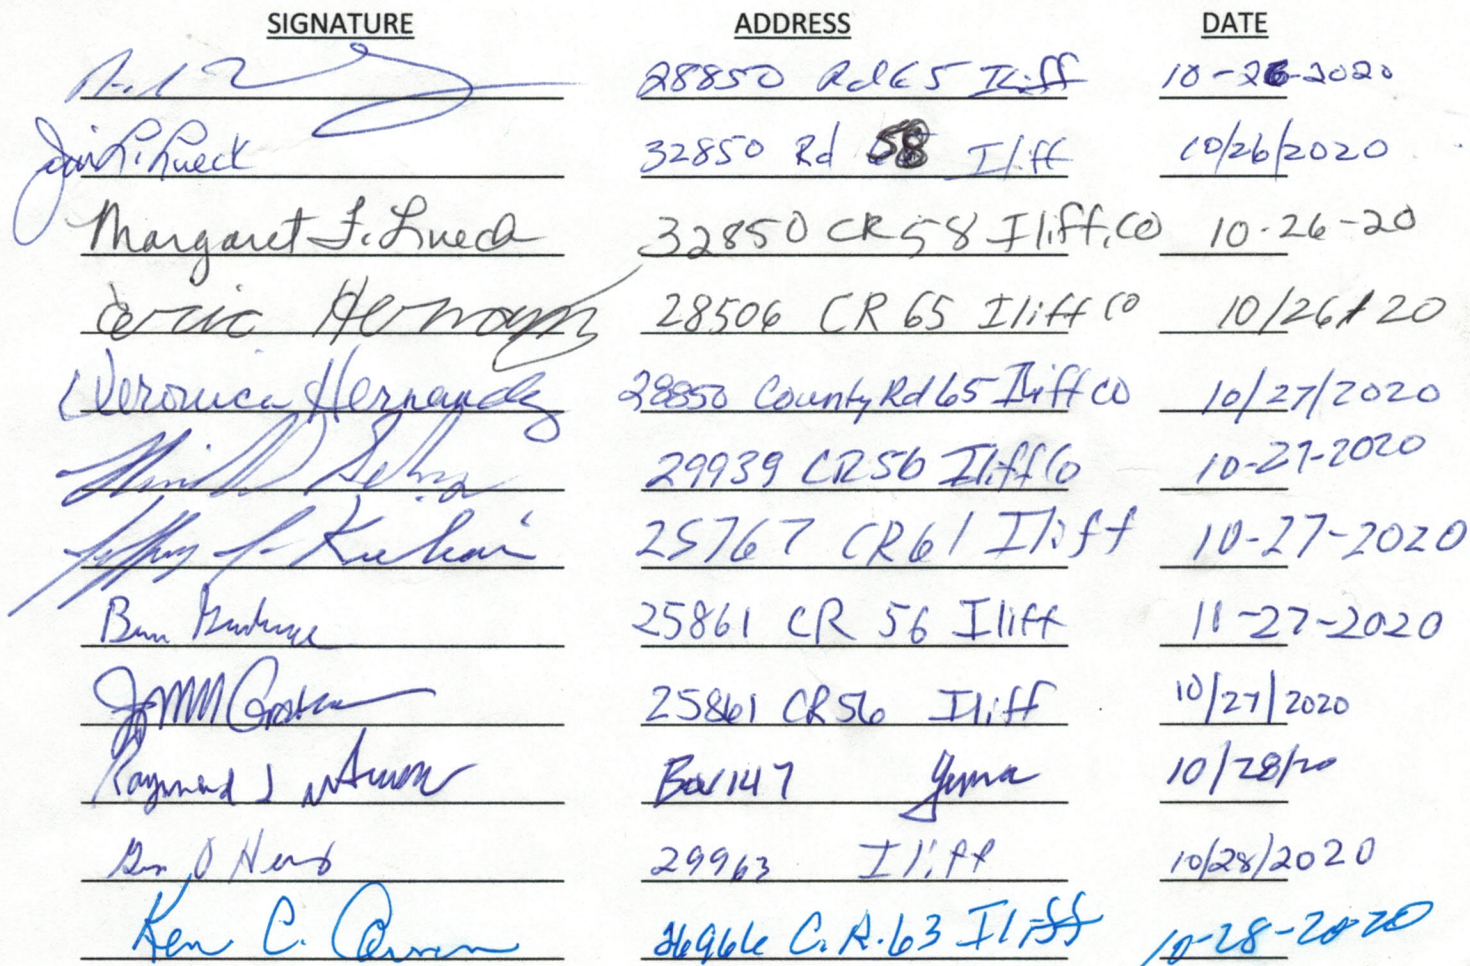 SIGNATURE ADDRESS DATE
28850 Rd 65 Iliff 10-26-2020
Jim L. Lueck 32850 Rd 58 Iliff 10/26/2020
Margaret F. Lueck 32850 CR 58 Iliff, CO 10-26-20
Eric Hernandez 28506 CR 65 Iliff CO 10/26/20
Veronica Hernandez 28850 County Rd 65 Iliff CO 10/27/2020
29939 CR 56 Iliff Co 10-27-2020
Jeffrey J. 25767 CR 61 Iliff 10-27-2020
Ben 25861 CR 56 Iliff 11-27-2020
25861 CR 56 Iliff 10/27/2020
Raymond J Box 147 Yuma 10/28/20
29963 Iliff 10/28/2020
Ken C. C.R. 63 Iliff 10-28-2020